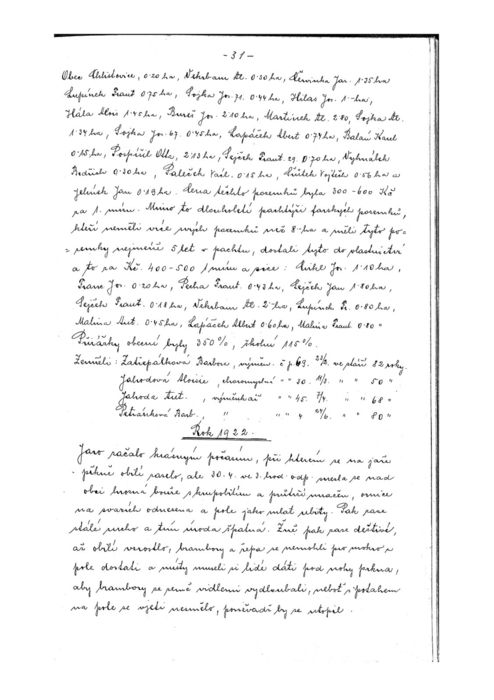 - 31 -
Obec Chlistovice, 0·20 ha, Nehrbam St. 0·30 ha, Červinka Jar. 1·35 ha
Lupínek Frant 0·75 ha, Sojka Jos. 71. 0·44 ha, Hilas Jos. 1·- ha,
Hála Alois 1·45 ha, Bureš Jos. 2·10 ha, Martínek St. 2·80, Sojka St.
1·34 ha, Sojka Jos. 67. 0·45 ha, Lapáček Albert 0·74 ha, Balan Karel
0·15 ha, Pospíšil Oth., 2·13 ha, Sejček Frant. 29. 0·70 ha, Vyhnálek
Bedřich 0·30 ha, Paleček Vacl. 0·15 ha, Vojtěch 0·56 ha a
Jelínek Jan 0·19 ha. Cena těchto pozemků byla 300-600 Kč
za 1. míru. Mimo to dlouholetí pachtýři farských pozemků,
kteří neměli více svých pozemků než 8 ha a měli tyto po=
=zemky nejméně 5 let v pachtu, dostali tyto do vlastnictví
a to za Kč. 400-500 1 míru a sice: Jos. 1·10 ha,
Franc Jos. 0·20 ha, Pecha Frant. 0·43 ha, Sejček Jan 1·80 ha,
Sejček Frant. 0·18 ha, Nehrbam St. 2·- ha, Lupínek Fr. 0·80 ha,
Malina Ant. 0·45 ha, Lapáček Albert 0·60 ha, Malina Frant 0·80 "
Přirážky obecní byly 350%, školní 115%.
Zemřeli: Zatřepálková Barbora, výměn. č p. 69. ve stáří 82 roky.
Jahodová Aloisie, choromyslná " " 30. " " 50 "
Jahoda Ant. , výměnkář " " 45. " " 68 "
Petránková Barb., " " " 4 " " 80 "
Rok 1922.
Jaro začalo krásným počasím, při kterém se na jaře
pěkně obilí zaselo, ale 30. 4. ve 3. hod odp. snesla se nad
obcí hrozná bouře s krupobitím a průtrží mračen, ornice
na svazích odnesena a pole jako mlat zbity. Pak zase
stálé sucho a tím úroda špatná. Žně pak zase deštivé,
až obilí vzrostlo, brambory a řepa se nemohli pro mokro z
pole dostati a místy museli si lidé dáti pod nohy prkna,
aby brambory ze země vidlemi vydloubali, neboť s potahem
na pole se vjeti nesmělo, poněvadž by se utopil.